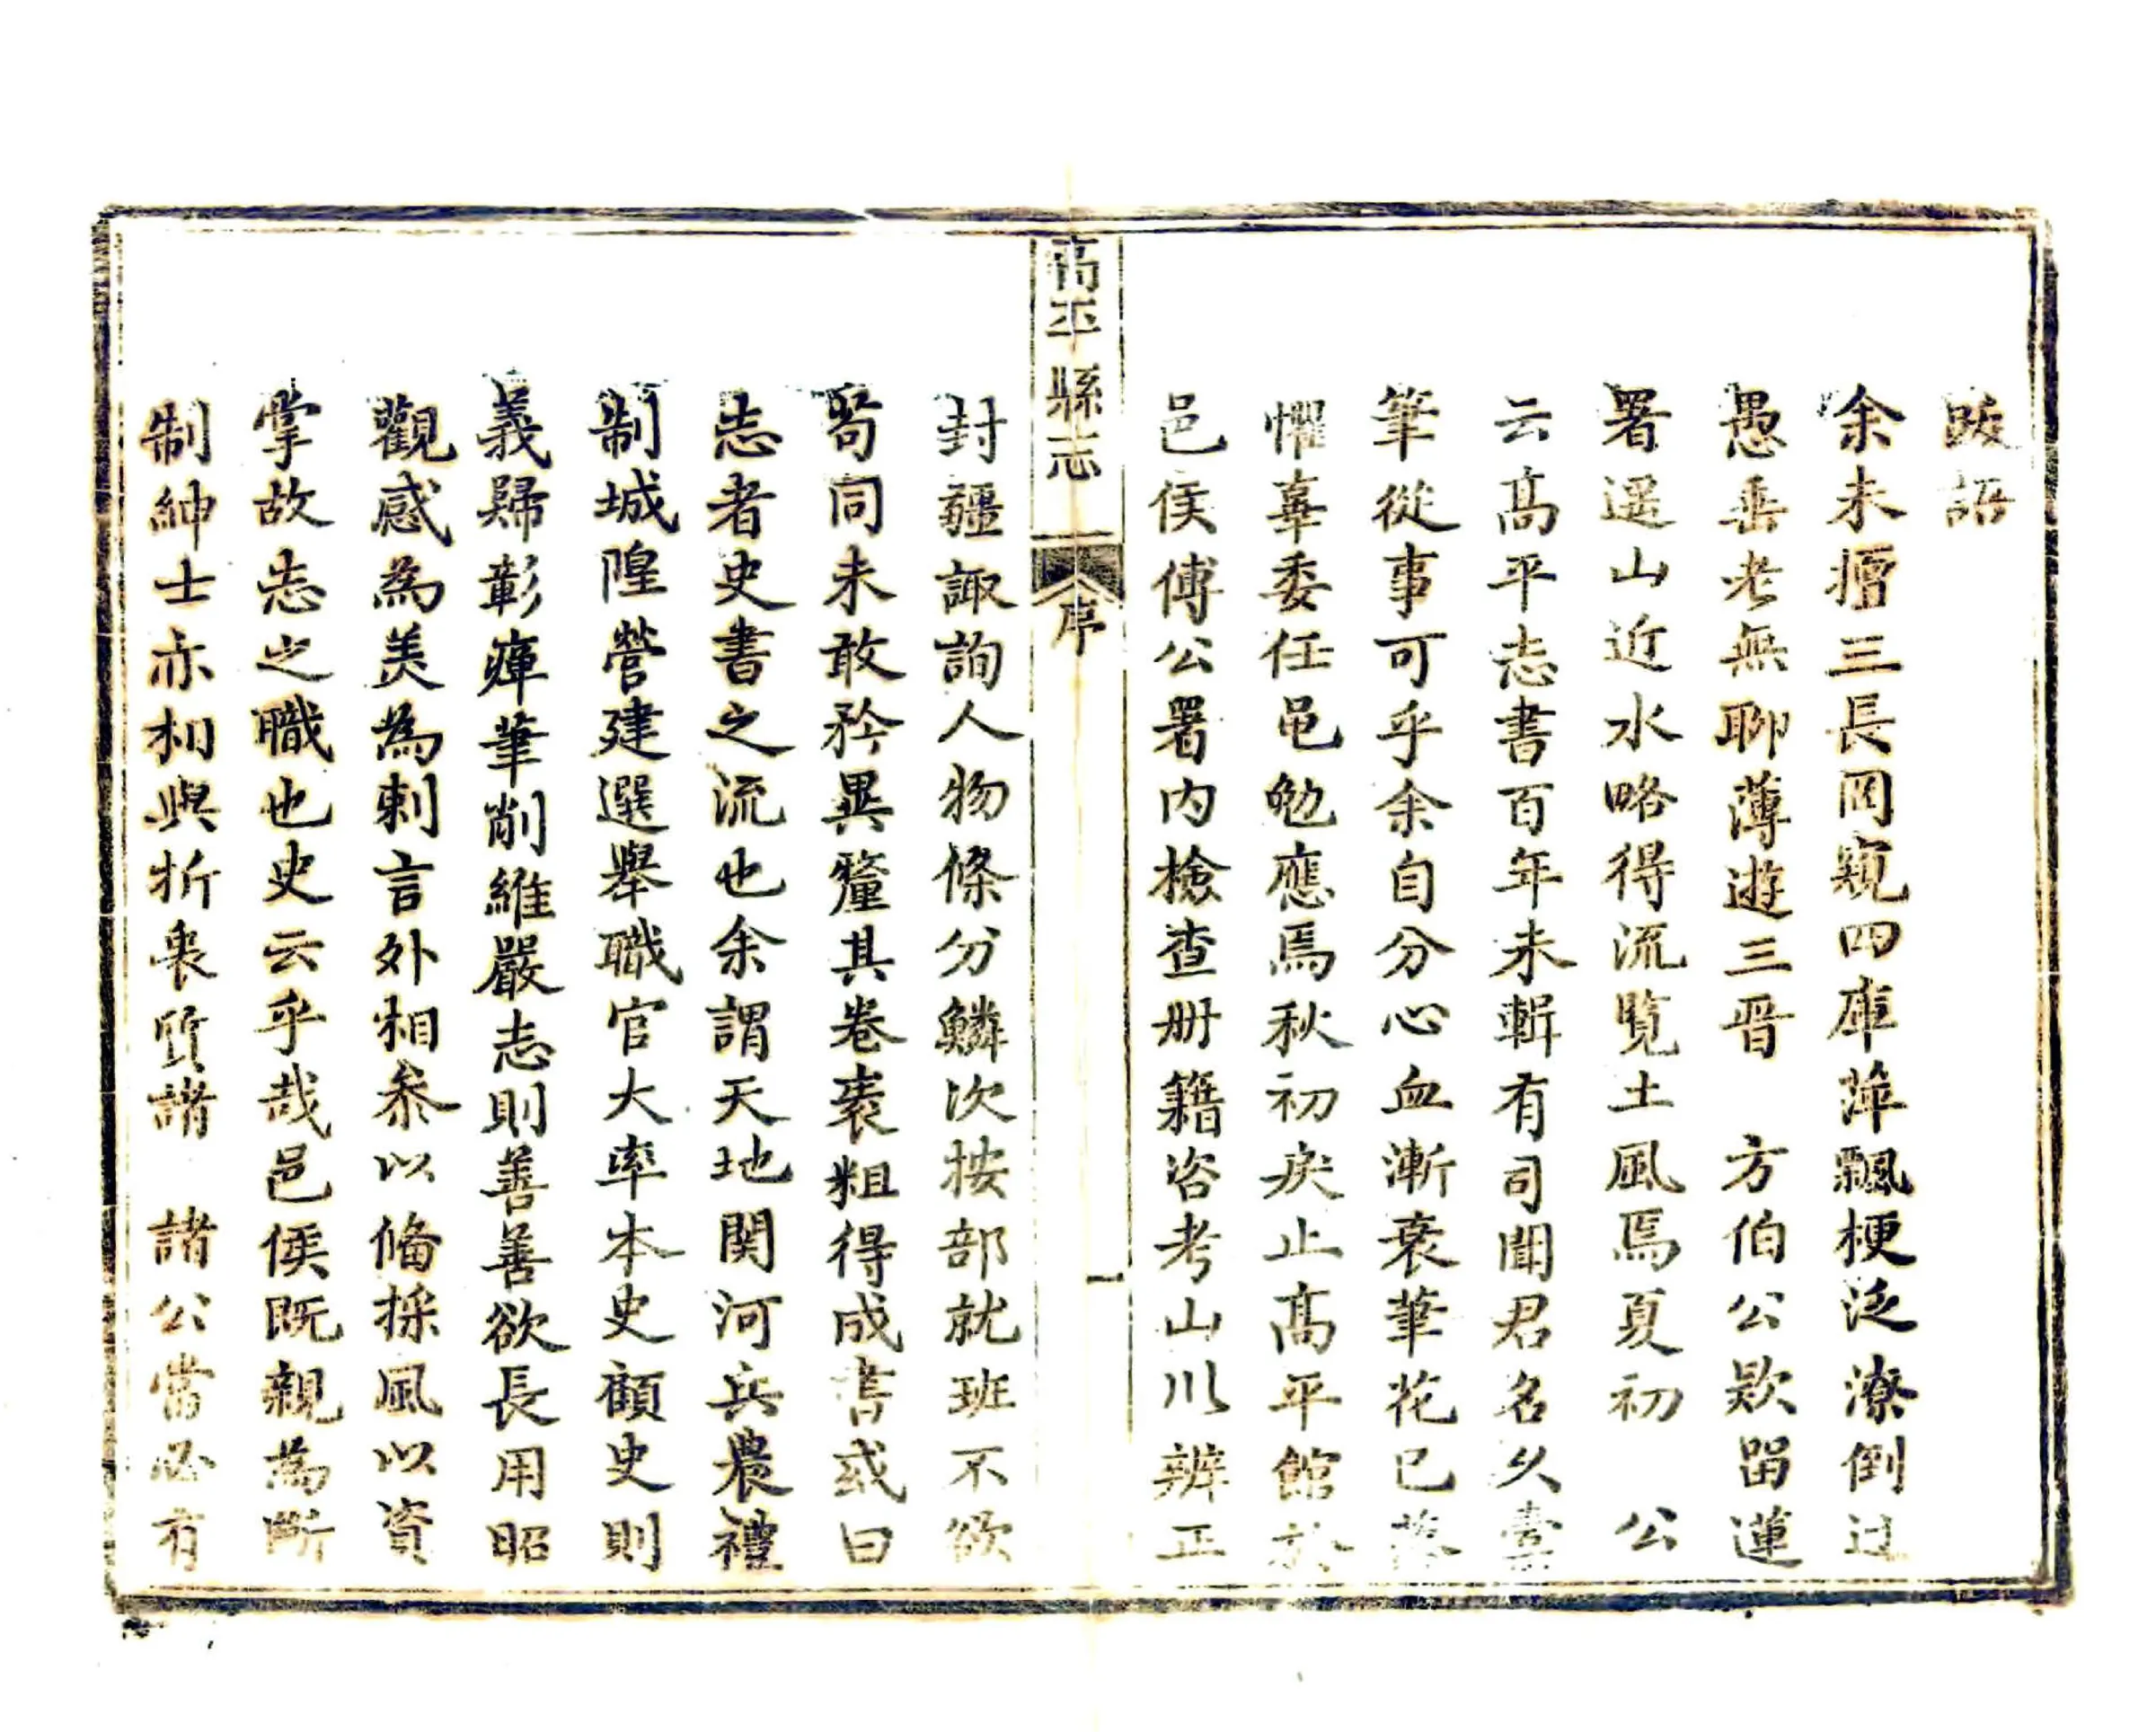 跋語
余未擅三長罔窺四庫萍飄梗泛潦倒过
愚垂老無聊薄遊三晉　方伯公欵留蓮
署遥山近水略得流覧土風焉夏初　公
云高平志書百年未輯有司聞君名久
筆從事可乎余自分心血漸衰筆花已落
懼辜委任邑勉應焉秋初疾止高平館於
邑侯傅公署内檢查册籍咨考山川辨正
高平縣志　序　一
封疆諏詢人物條分鱗次按部就班不欲
苟同未敢矜異釐其卷袠粗得成書或曰
志者史書之流也余謂天地関河兵農禮
制城隍營建選舉職官大率本史顧史則
義歸彰癉筆削維嚴志則善善欲長用昭
觀感為美為刺言外相叅以俻採風以資
掌故志之職也史云乎哉邑侯既親為斷
制紳士亦相與折衷質諸　諸公當必有